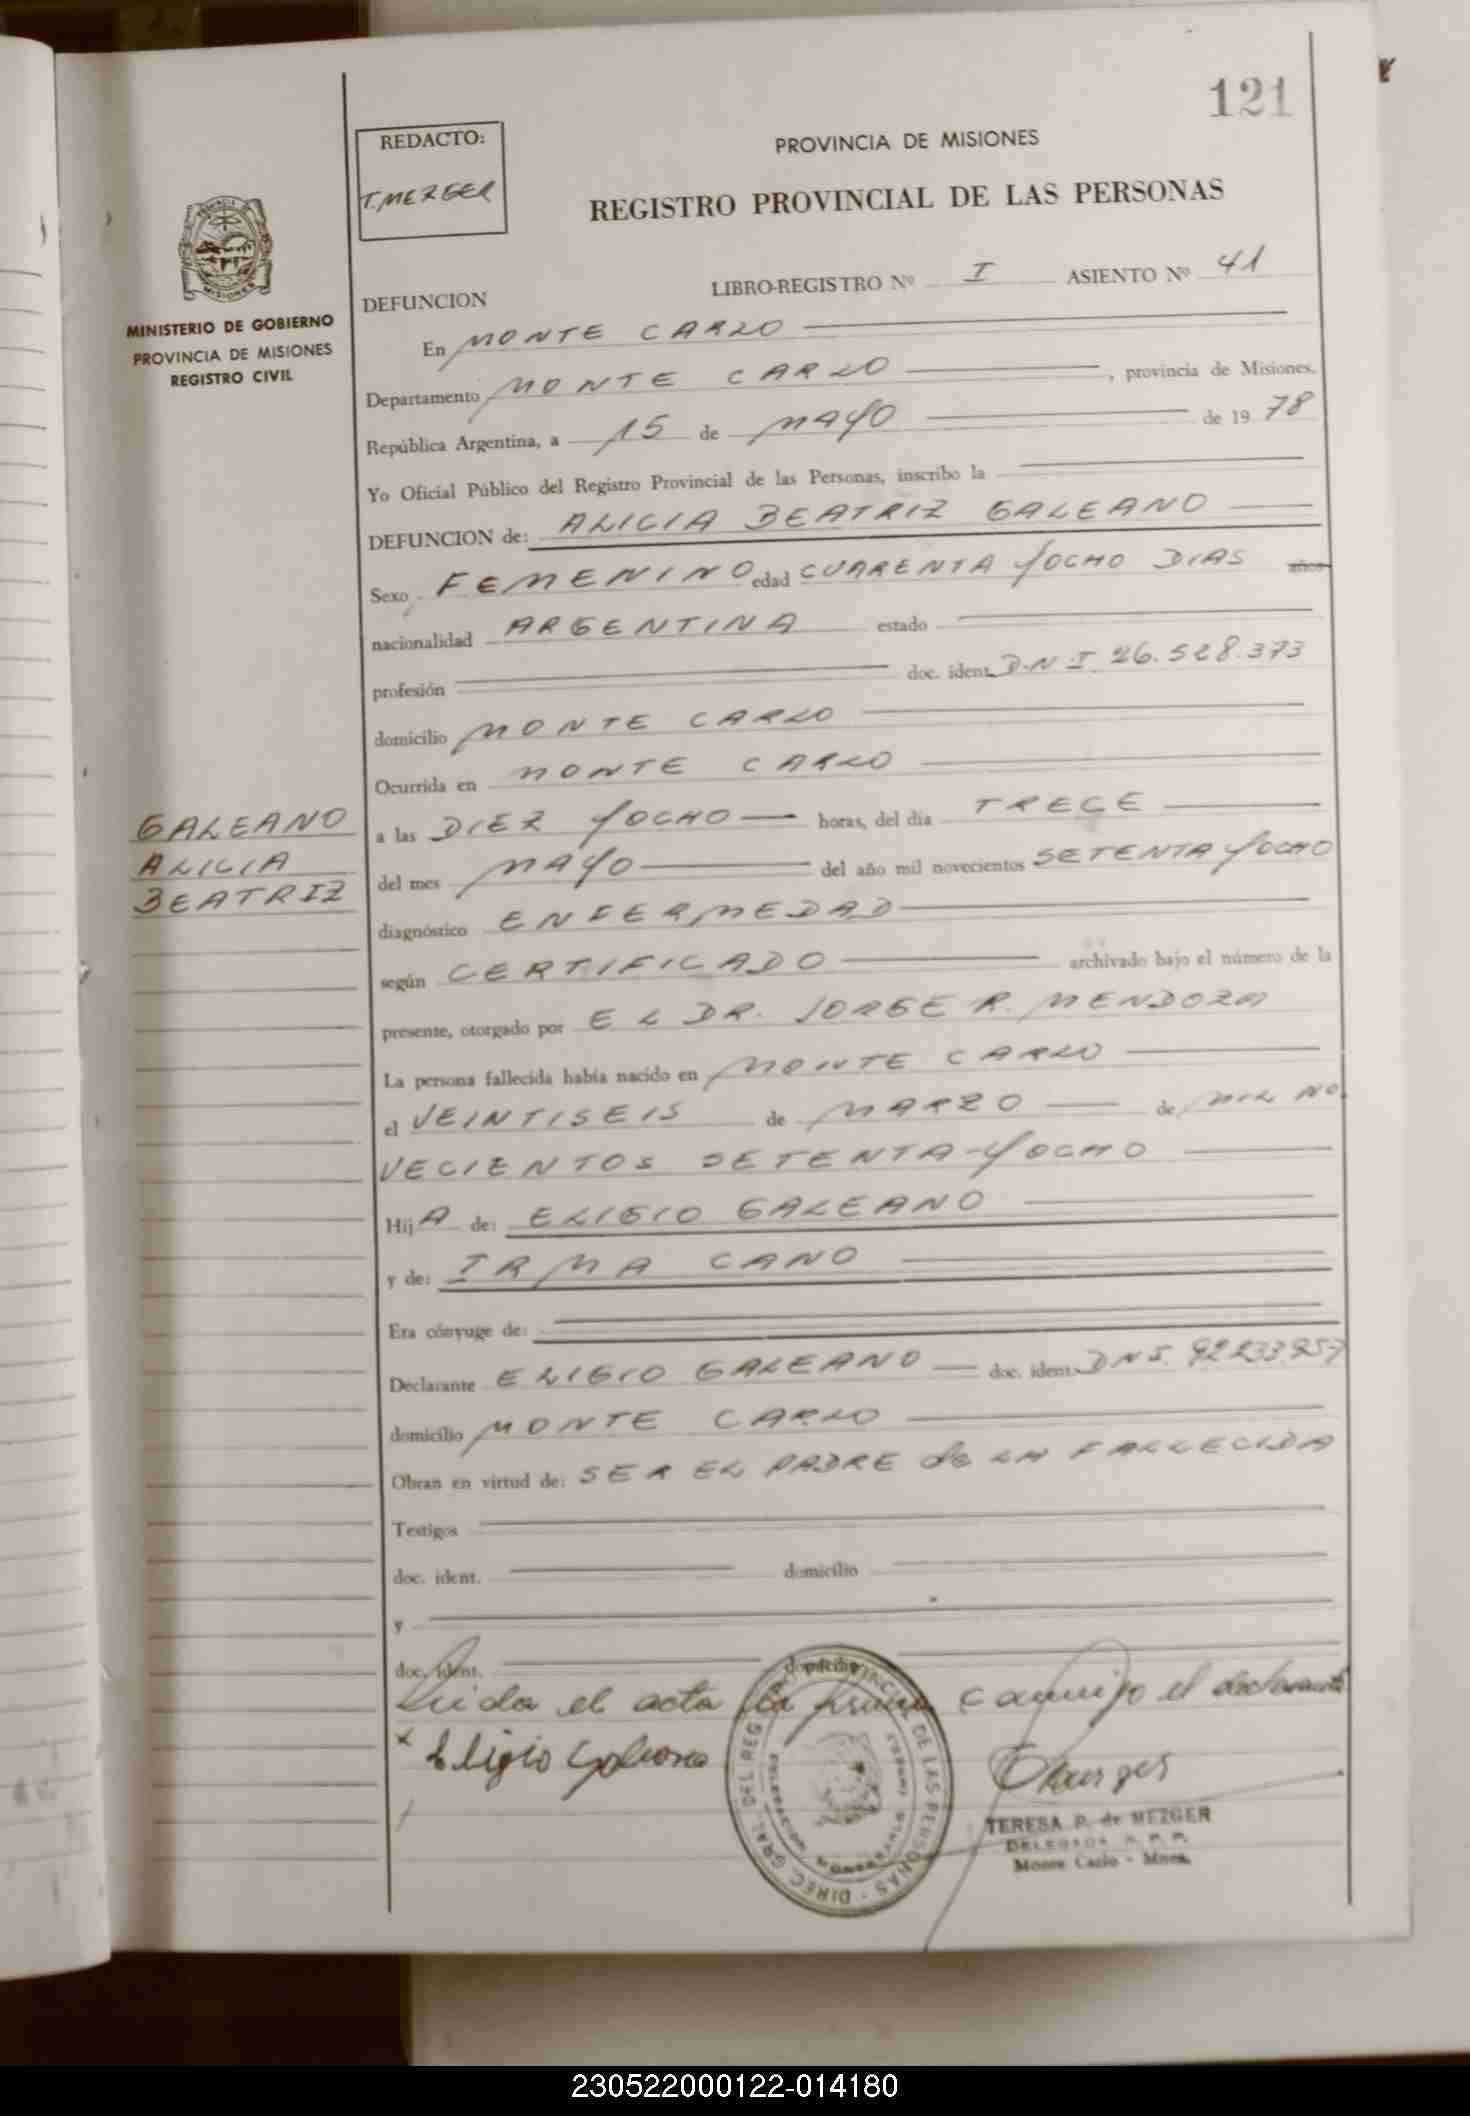 121
REDACTO:
T. MEZGER
PROVINCIA DE MISIONES
REGISTRO PROVINCIAL DE LAS PERSONAS
MINISTERIO DE GOBIERNO
PROVINCIA DE MISIONES
REGISTRO CIVIL
LIBRO-REGISTRO Nº I ASIENTO Nº 41
DEFUNCION
En MONTE CARLO
Departamento MONTE CARLO, provincia de Misiones,
República Argentina, a 15 de MAYO de 19 78
Yo Oficial Público del Registro Provincial de las Personas, inscribo la
DEFUNCION de: ALICIA BEATRIZ GALEANO
Sexo FEMENINO edad CUARENTA YOCHO DIAS años
nacionalidad ARGENTINA estado
profesión doc. ident. D.N.I. 26.528.373
domicilio MONTE CARLO
Ocurrida en MONTE CARLO
GALEANO
ALICIA
BEATRIZ
a las DIEZ YOCHO horas, del día TRECE
del mes MAYO del año mil novecientos SETENTA YOCHO
diagnóstico ENFERMEDAD
según CERTIFICADO archivado bajo el número de la
presente, otorgado por EL DR. JORGE R. MENDOZA
La persona fallecida había nacido en MONTE CARLO
el VEINTISEIS de MARZO de MIL NO
VECIENTOS SETENTA-YOCHO
Hij A de: ELIGIO GALEANO
y de: IRMA CANO
Era cónyuge de:
Declarante ELIGIO GALEANO doc. ident. DNI.
domicilio MONTE CARLO
Obran en virtud de: SER EL PADRE de LA FALLECIDA
Testigos
doc. ident. domicilio
y
doc. ident. domicilio
Leida el acta la firma conmigo el declarante
x Eligio Galeano
TERESA P. de MEZGER
DELEGADA R. P. P.
Monte Carlo - Mnes.
DIREC. GRAL. DEL REG. PROVINCIAL DE LAS PERSONAS
230522000122-014180